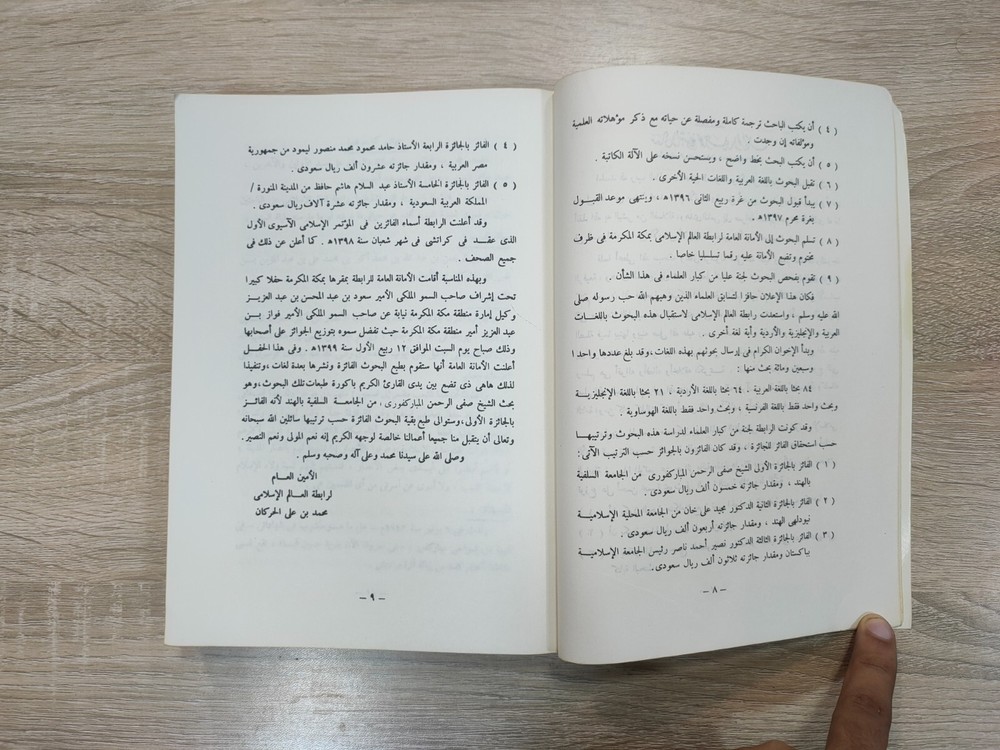 ( ٤ ) أن يكتب الباحث ترجمة كاملة ومفصلة عن حياته مع ذكر مؤهلاته العلمية
ومؤلفاته إن وجدت .
( ٥ ) أن يكتب البحث بخط واضح ، ويستحسن نسخه على الآلة الكاتبة .
( ٦ ) تقبل البحوث باللغة العربية واللغات الحية الأخرى .
( ٧ ) يبدأ قبول البحوث من غرة ربيع الثانى ١٣٩٦ه ، وينتهى موعد القبــول
بغرة محرم ١٣٩٧ه .
( ٨ ) تسلم البحوث إلى الأمانة العامة لرابطة العالم الإسلامى بمكة المكرمة فى ظرف
مختوم وتضع الأمانة عليه رقما تسلسليا خاصا .
( ٩ ) تقوم بفحص البحوث لجنة عليا من كبار العلماء فى هذا الشأن .
فكان هذا الإعلان حافزا لتسابق العلماء الذين وهبهم الله حب رسوله صلى
الله عليه وسلم ، واستعدت رابطة العالم الإسلامى لاستقبال هذه البحوث باللغــات
العربية والإنجليزية والأردية وأية لغة أخرى .
وبدأ الإخوان الكرام فى إرسال بحوثهم بهذه اللغات ، وقد بلغ عددها واحد ا
وسبعين ومائة بحث منها :
٨٤ بحثا باللغة العربية . ٦٤ بحثا باللغة الأردية ، ٢١ بحثا باللغة الإنجليزيــة
وبحث واحد فقط باللغة الفرنسية ، وبحث واحد فقط باللغة الهوساوية .
وقد كونت الرابطة لجنة من كبار العلماء لدراسة هذه البحوث وترتيبهــا
حسب استحقاق الفائز للجائزة ، وقد كان الفائزون بالجوائز حسب الترتيب الآتى :
( ١ ) الفائز بالجائزة الأولى الشيخ صفى الرحمن المباركفورى من الجامعة السلفية
بالهند ، ومقدار جائزته خمسون ألف ريال سعودى .
( ٢ ) الفائز بالجائزة الثانية الدكتور مجيد على خان من الجامعة المحلية الإسلاميــة
نيودلهى الهند ، ومقدار جائزته أربعون ألف ريال سعودى .
( ٣ ) الفائز بالجائزة الثالثة الدكتور نصير أحمد ناصر رئيس الجامعة الإسلاميــة
بباكستان ومقدار جائزته ثلاثون ألف ريال سعودى .
– ٨ –
( ٤ ) الفائز بالجائزة الرابعة الأستاذ حامد محمود محمد منصور ليمود من جمهورية
مصر العربية ، ومقدار جائزته عشرون ألف ريال سعودى .
( ٥ ) الفائز بالجائزة الخامسة الأستاذ عبد السلام هاشم حافظ من المدينة المنورة /
المملكة العربية السعودية ، ومقدار جائزته عشرة آلاف ريال سعودى .
وقد أعلنت الرابطة أسماء الفائزين فى المؤتمر الإسلامى الآسيوى الأول
الذى عقــد فى كراتشى فى شهر شعبان سنة ١٣٩٨ه . كما أعلن عن ذلك فى
جميع الصحف .
وبهذه المناسبة أقامت الأمانة العامة للرابطة بمقرها بمكة المكرمة حفلا كبيرا
تحت إشراف صاحب السمو الملكى الأمير سعود بن عبد المحسن بن عبد العزيــز
وكيل إمارة منطقة مكة المكرمة نيابة عن صاحب السمو الملكى الأمير فواز بــن
عبد العزيز أمير منطقة مكة المكرمة حيث تفضل سموه بتوزيع الجوائز على أصحابها
وذلك صباح يوم السبت الموافق ١٢ ربيع الأول سنة ١٣٩٩ه . وفى هذا الحفــل
أعلنت الأمانة العامة أنها ستقوم بطبع البحوث الفائزة ونشرها بعدة لغات ، وتنفيذا
لذلك هاهى ذى تضع بين يدى القارئ الكريم باكورة طبعات تلك البحوث ، وهو
بحث الشيخ صفى الرحمن المباركفورى ، من الجامعــة السلفية بالهند لأنه الفائــز
بالجائزة الأولى ، وستوالى طبع بقية البحوث الفائزة حسب ترتيبها سائلين الله سبحانه
وتعالى أن يتقبل منا جميعا أعمالنا خالصة لوجهه الكريم إنه نعم المولى ونعم النصير .
وصلى الله على سيدنا محمد وعلى آله وصحبه وسلم .
الأمين العــام
لرابطة العــالم الإسلامى
محمد بن على الحركان
– ٩ –